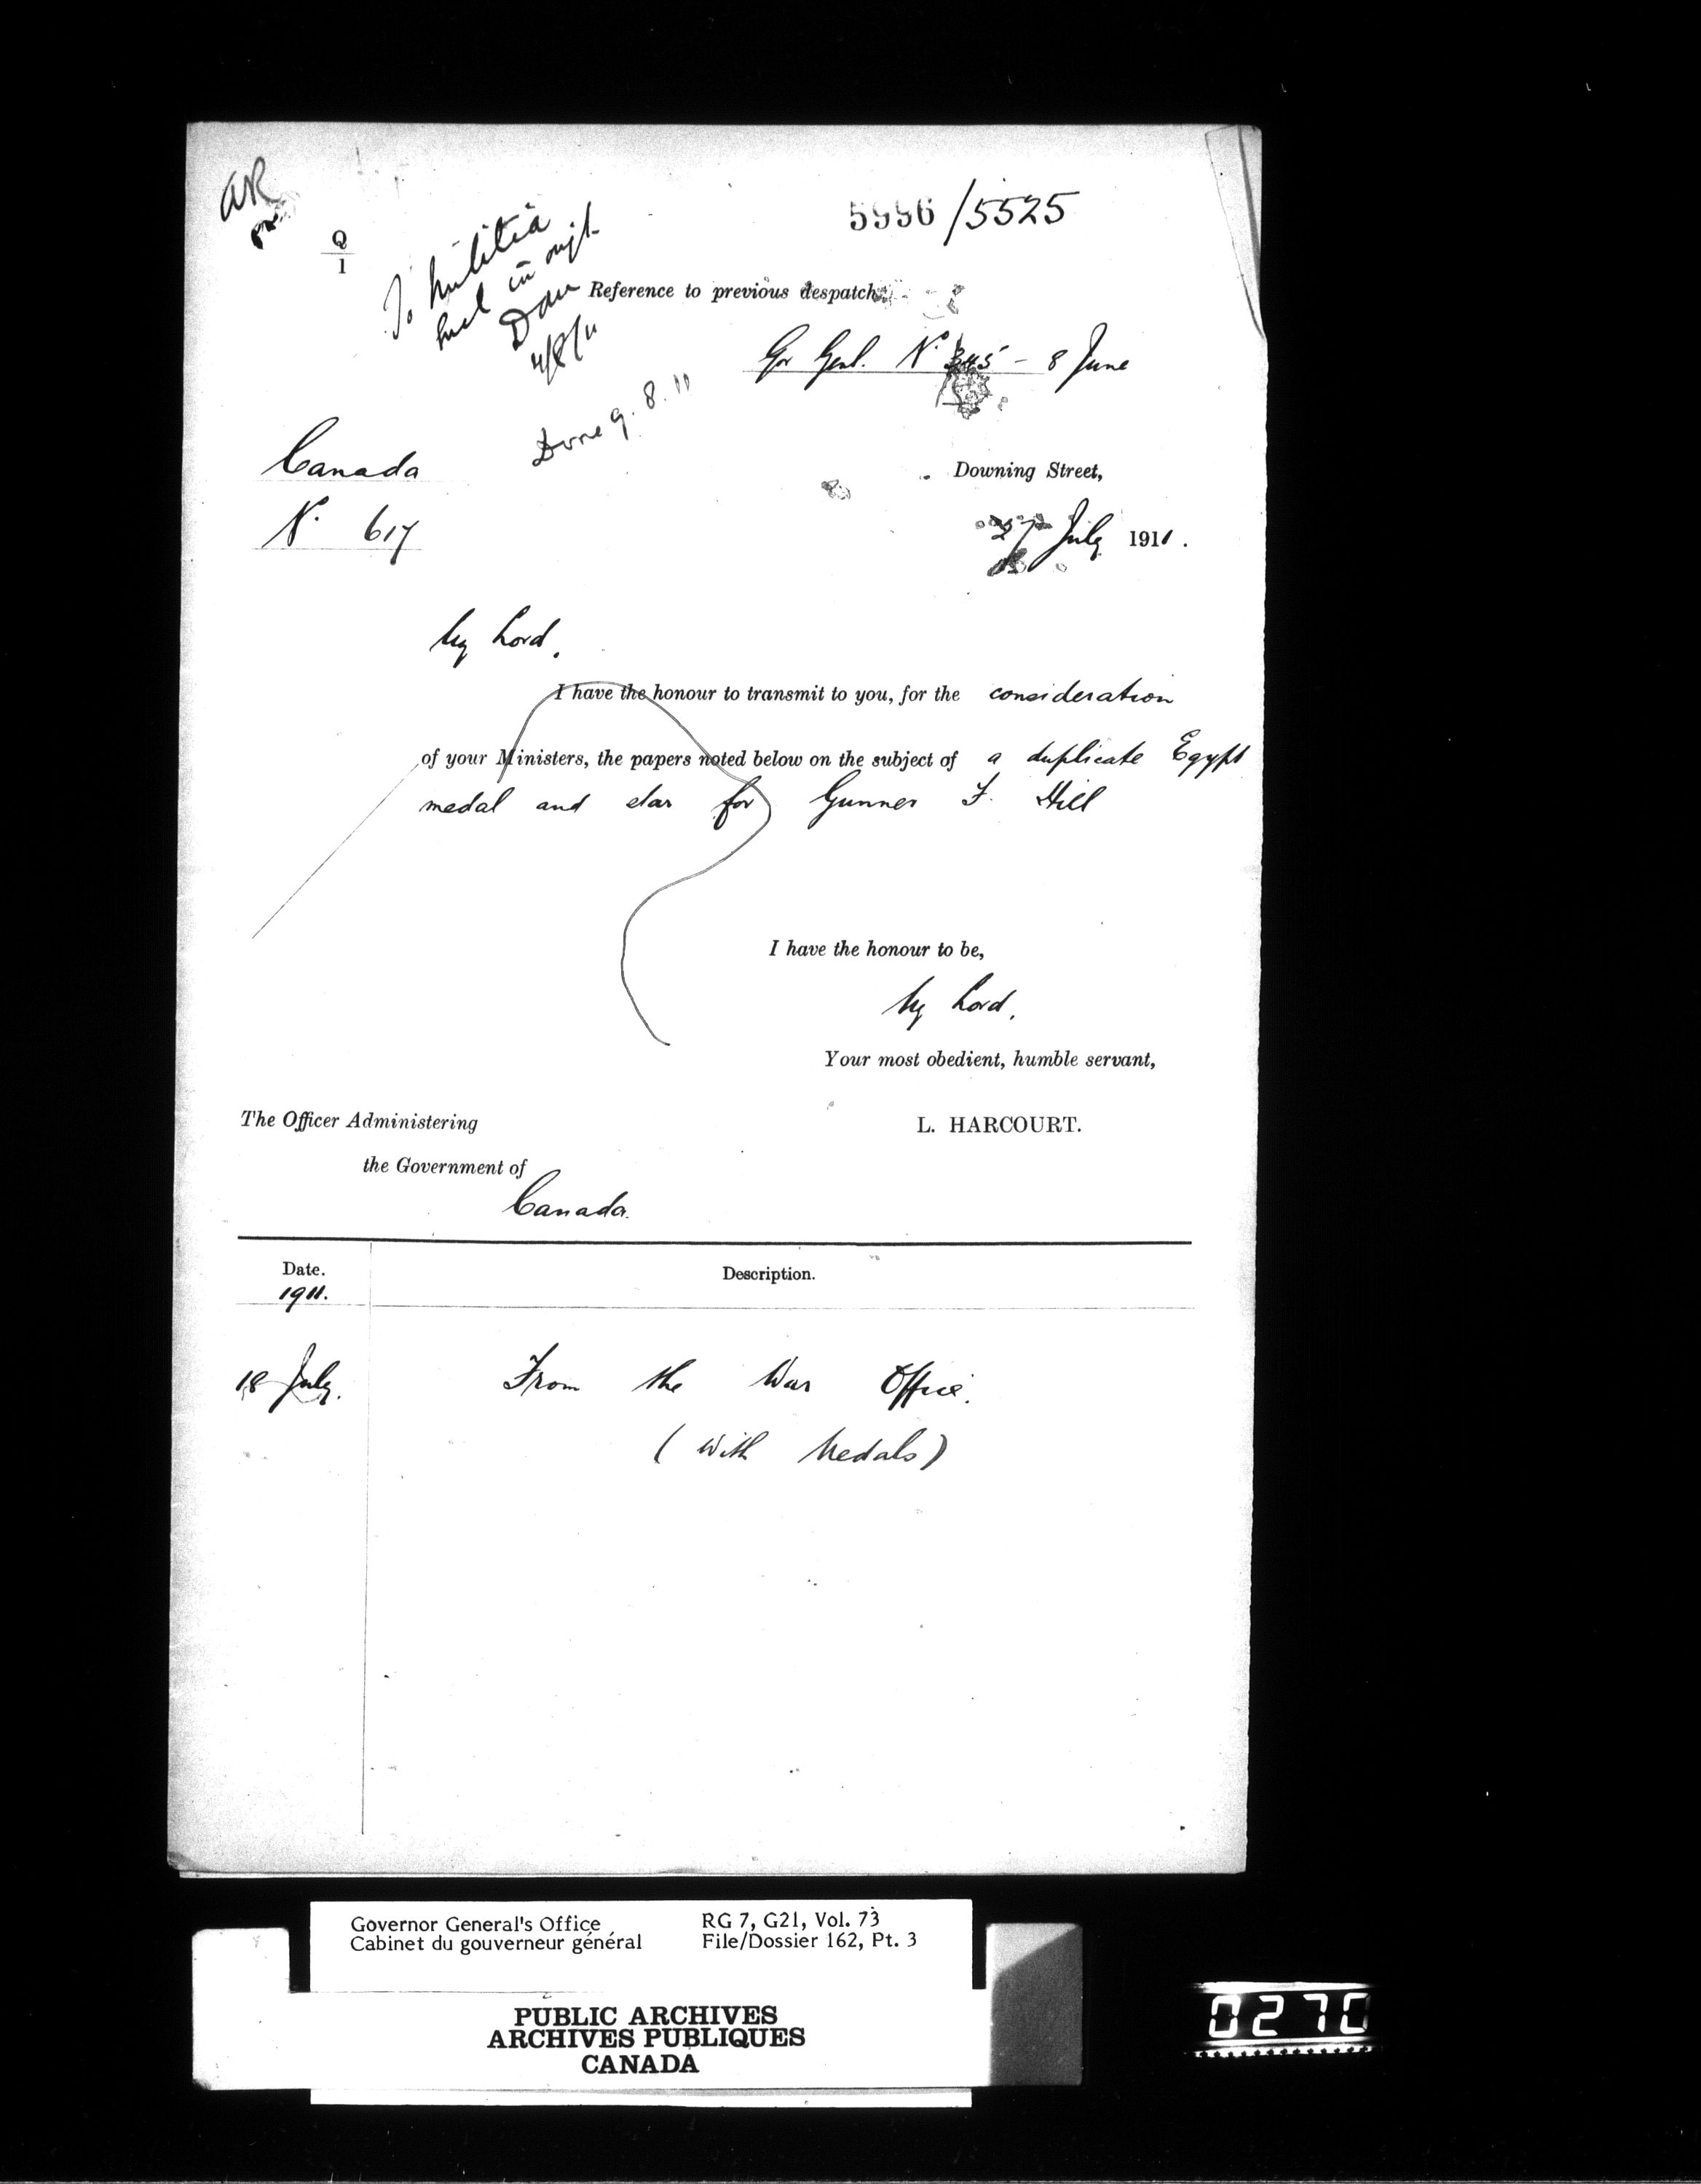 AR
Q
1
5996/5525
To Militia
in
4/8/11
Reference to previous despatch
Gov Genl. No 345 - 8 June
Done 9.8.11
Canada
No. 617
Downing Street,
27 July 1911.
My Lord,
I have the honour to transmit to you, for the consideration
of your Ministers, the papers noted below on the subject of a duplicate Egypt
medal and star for Gunner F. Hill
I have the honour to be,
My Lord,
Your most obedient, humble servant,
L. HARCOURT.
The Officer Administering
the Government of
Canada.
Date. Description.
1911.
18 July. From the War Office.
(with Medals)
Governor General's Office RG 7, G21, Vol. 73
Cabinet du gouverneur général File/Dossier 162, Pt. 3
PUBLIC ARCHIVES
ARCHIVES PUBLIQUES
CANADA
0270